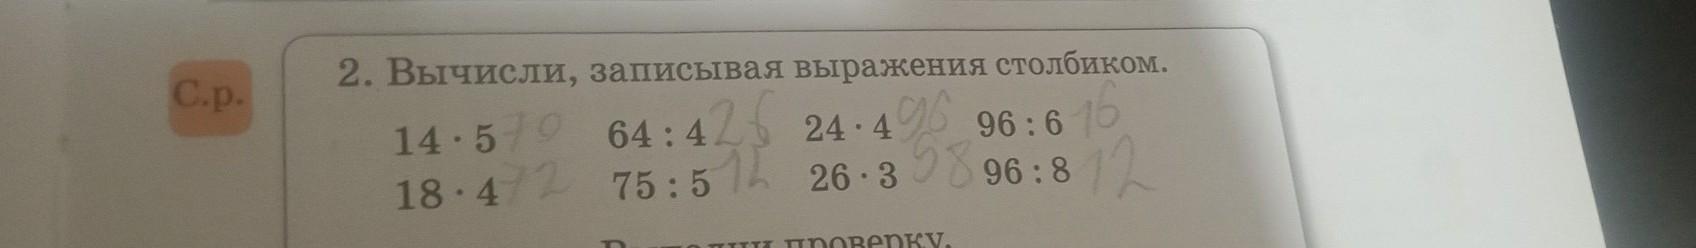 С.р.
2. Вычисли, записывая выражения столбиком.
14 · 5 70 64 : 4 26 24 · 4 96 96 : 6 16
18 · 4 72 75 : 5 26 · 3 58 96 : 8 12
проверку.